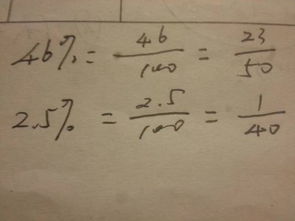 46% = 46/100 = 23/50
2.5% = 2.5/100 = 1/40